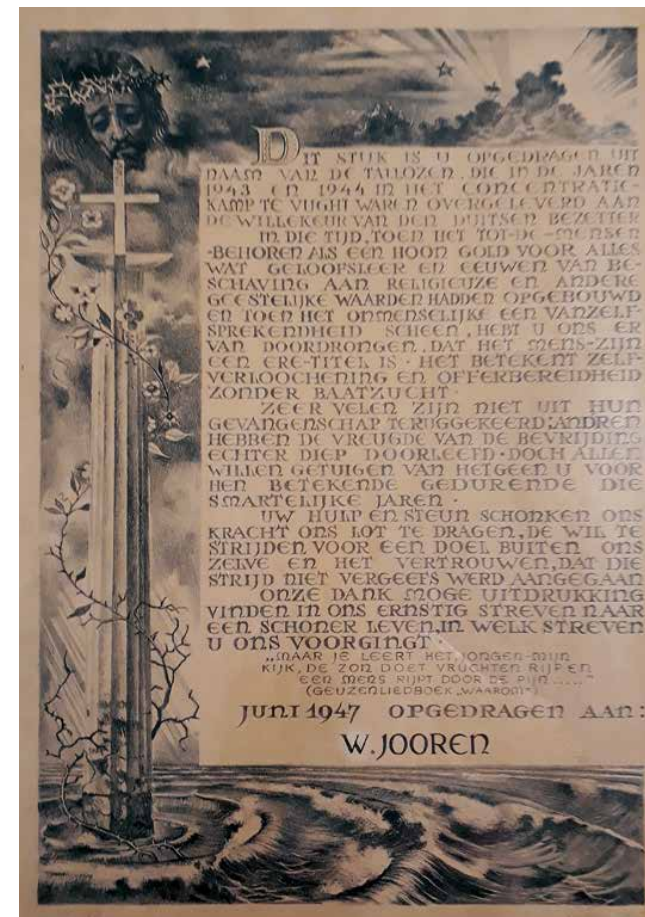 DIT STUK IS U OPGEDRAGEN UIT
NAAM VAN DE TALLOZEN, DIE IN DE JAREN
1943 EN 1944 IN HET CONCENTRATIE-
KAMP TE VUGHT WAREN OVERGELEVERD AAN
DE WILLEKEUR VAN DEN DUITSEN BEZETTER
IN DIE TIJD, TOEN HET TOT-DE-MENSEN
-BEHOREN ALS EEN HOON GOLD VOOR ALLES
WAT GELOOFSLEER EN EEUWEN VAN BE-
SCHAVING AAN RELIGIEUZE EN ANDERE
GEESTELIJKE WAARDEN HADDEN OPGEBOUWD
EN TOEN HET ONMENSELIJKE EEN VANZELF-
SPREKENDHEID SCHEEN, HEBT U ONS ER
VAN DOORDRONGEN, DAT HET MENS-ZIJN
EEN ERE-TITEL IS · HET BETEKENT ZELF-
VERLOOCHENING EN OFFERBEREIDHEID
ZONDER BAATZUCHT ·
ZEER VELEN ZIJN NIET UIT HUN
GEVANGENSCHAP TERUGGEKEERD; ANDREN
HEBBEN DE VREUGDE VAN DE BEVRIJDING
ECHTER DIEP DOORLEEFD · DOCH ALLEN
WILLEN GETUIGEN VAN HETGEEN U VOOR
HEN BETEKENDE GEDURENDE DIE
SMARTELIJKE JAREN ·
UW HULP EN STEUN SCHONKEN ONS
KRACHT ONS LOT TE DRAGEN, DE WIL TE
STRIJDEN VOOR EEN DOEL BUITEN ONS
ZELVE EN HET VERTROUWEN, DAT DIE
STRIJD NIET VERGEEFS WERD AANGEGAAN
ONZE DANK MOGE UITDRUKKING
VINDEN IN ONS ERNSTIG STREVEN NAAR
EEN SCHONER LEVEN, IN WELK STREVEN
U ONS VOORGINGT ·
„MAAR JE LEERT HET JONGEN-MIJN
KIJK, DE ZON DOET VRUCHTEN RIJPEN
EEN MENS RIJPT DOOR DE PIJN ....."
(GEUZENLIEDBOEK „WAAROM")
JUNI 1947 OPGEDRAGEN AAN:
W. JOOREN